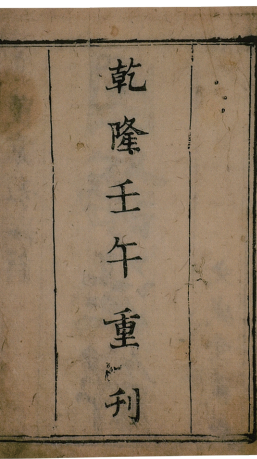 乾隆壬午重刊